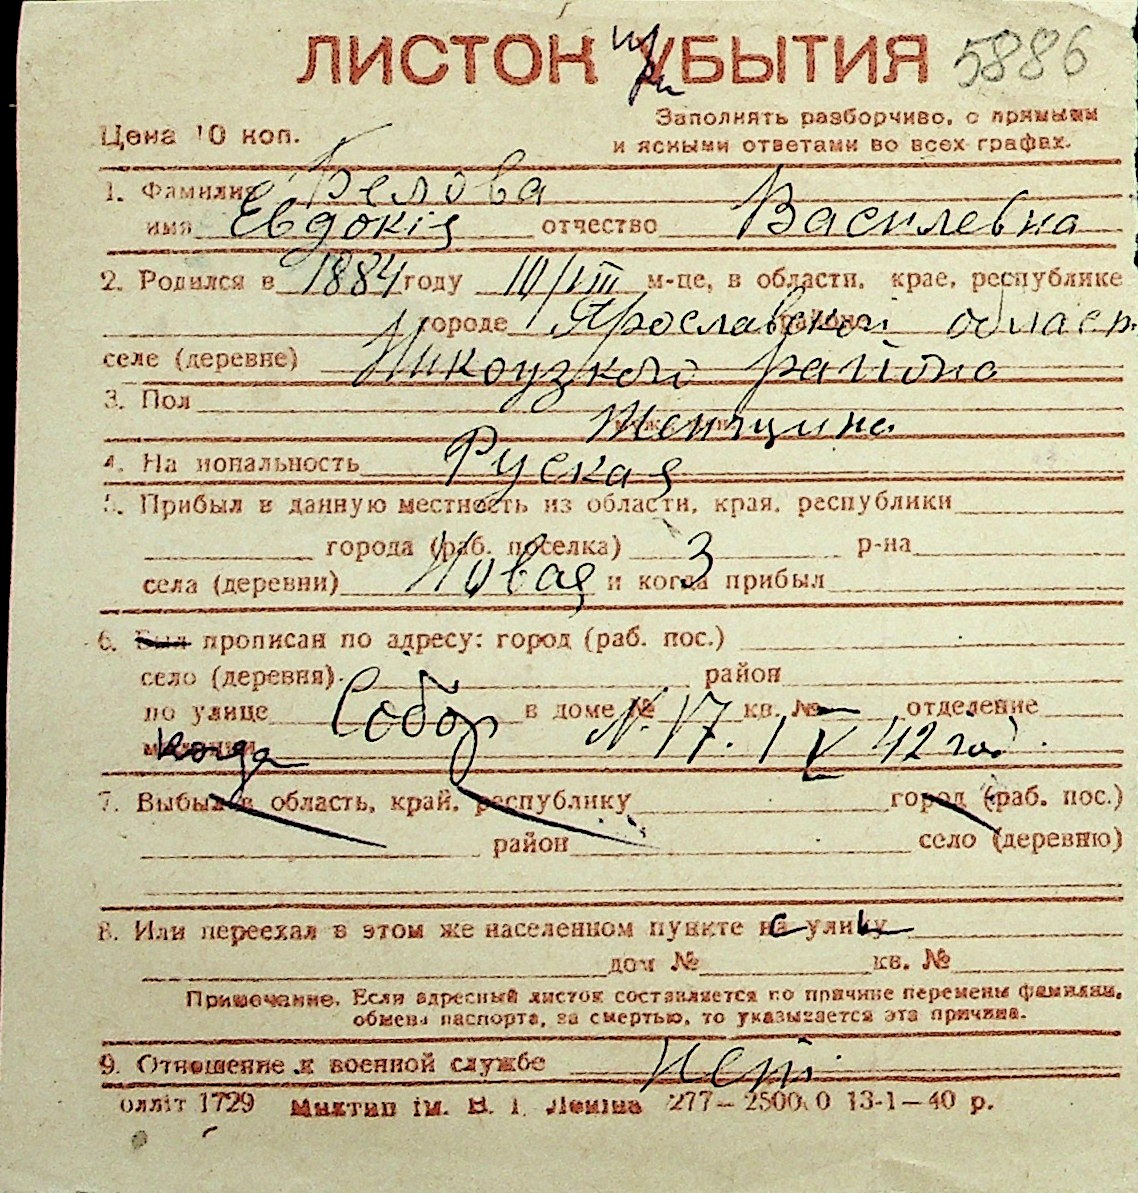 ЛИСТОК УБЫТИЯ 5886
при
Заполнять разборчиво, с прямыми
Цена 10 коп. и ясными ответами во всех графах.
1. Фамилия Белова
имя Евдокія отчество Василевна
2. Родился в 1884 году 10/VIII м-це, в области, крае, республике
городе Ярославской област.
селе (деревне) Никоузкого района
3. Пол
Женщина
4. На иональность Руская
5. Прибыл в данную местность из области, края, республики
города (раб. поселка) 3 р-на
села (деревни) Новая и когда прибыл
6. Был прописан по адресу: город (раб. пос.)
село (деревня) район
по улице Собор в доме № N. 17. кв. № отделение
когда 1 V 42 год.
7. Выбыл в область, край, республику город (раб. пос.)
район село (деревню)
8. Или переехал в этом же населенном пункте с улицы
дом № кв. №
Примечание. Если адресный листок составляется по причине перемены фамилии,
обмена паспорта, за смертью, то указывается эта причина.
9. Отношение к военной службе нет.
олліт 1729 Миктип ім. В. І. Леніна 277—2500.0 13-1—40 р.